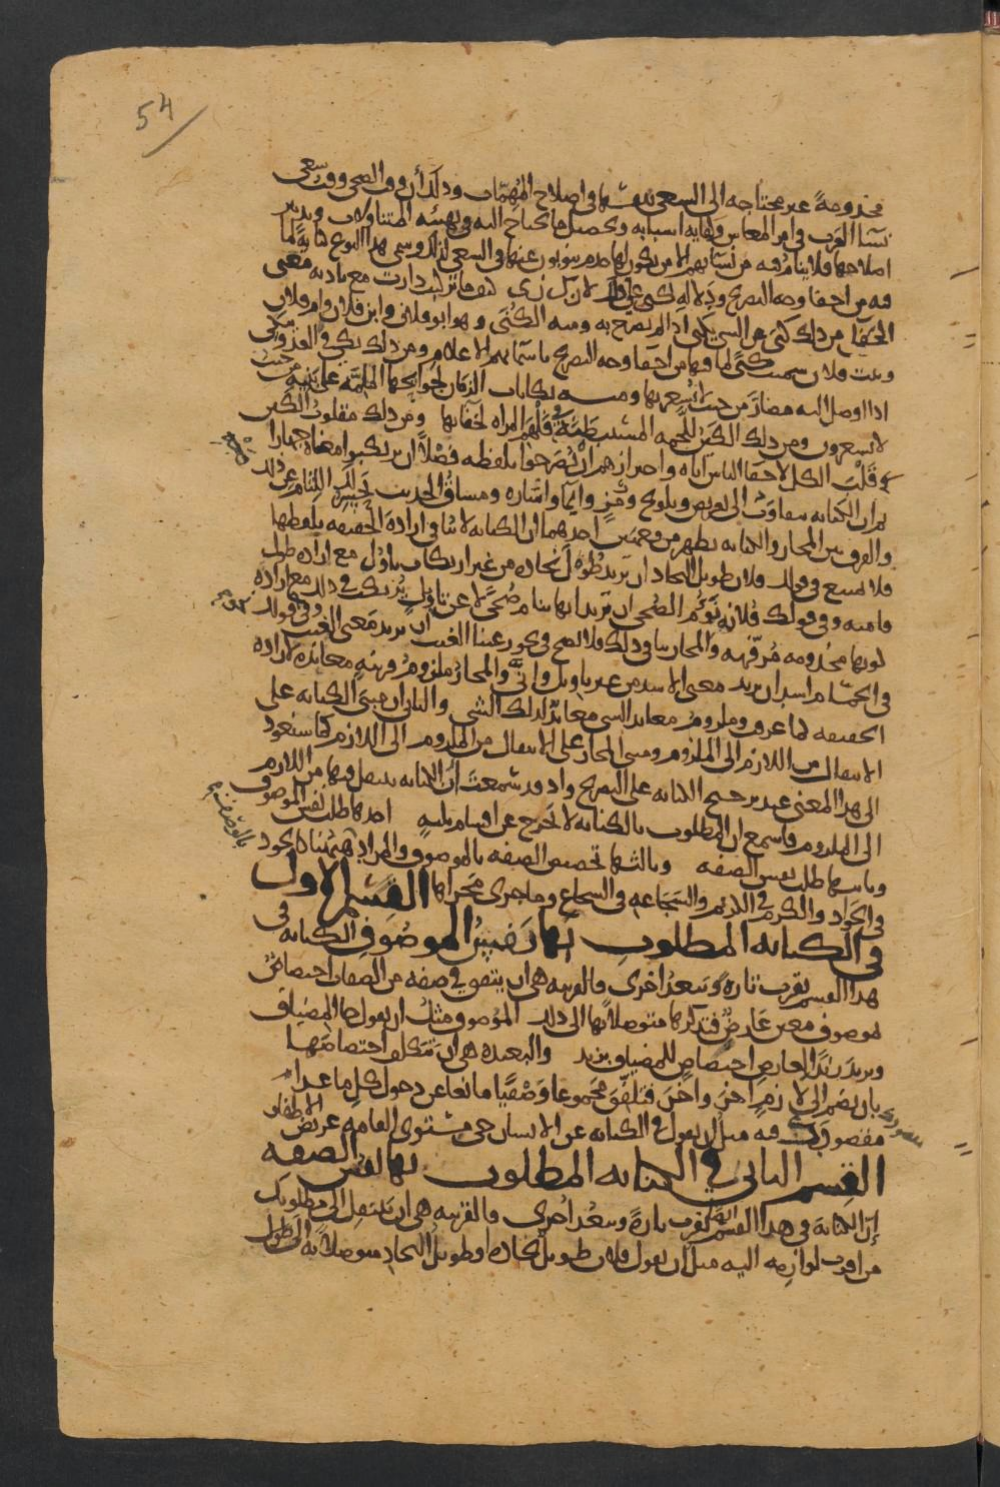 54
مخدومةً غير محتاجه الى السعي بنفسها في اصلاح المُهِمّات وذلك أن وقت الضحى وقت سعي
نسآ العَرب في امر المعاش وكفايه اسبابه وتحصيل ما يحتاج اليه في تهيئه المتناولات وتدبير
اصلاحها فلا ينام فيه من نسآئهم الا من يكون لها خدم ينوبون عنها في السعي لذلك وسمي هذا النوع كنايةً لما
فيه من اخفا وجه التصريح ودَلاله كنى على ذلك لان ك ن ي كيف ما تركبت دارت مع تاديه معنى
الخفآ من ذلك كنى عن الشي يكنى اذا لم يصرح به ومنه الكُنى وهو ابو فلان وابن فلان وام فلان
وبنت فلان سميت كُنًى لما فيها من اخفا وجه التصريح باسمآئهم الاعلام ومن ذلك نكى في العدو ينكي
اذا اوصل اليه مضارَّ من حيث لا يُشعر بها ومنه نكايات الزمان لجوآئحها الملمَّه على بَنيهِ من حيث
لا يشعرون ومن ذلك الكين للحمه المستبطَنَةِ في فَلْهَم المراه لخفآئها ومن ذلك مقلوبُ الكين
في قَلْب الكل لاخفا الناس اياه واحترازهم ان يُصَرحوا بلفظه فضلًا ان يرتكبوا معناه جهارا
ثم ان الكنايه تتفاوت الى تعريض وتلويح ورَمْزٍ وايمآ واشاره ومساقُ الحديث يَحسِر لك اللثام عن ذلك
والفرق بين المجاز والكنايه يظهر من وجهين احدهما ان الكنايه لا تنافي ارادة الحقيقه بلفظها
فلا يمتنع في قولك فلان طويل النجاد ان تريد طول نجاده من غير ارتكاب تاوّل مع اراده طول
قامته وفي قولك فلانه نؤُم الضُحى ان تريد انها تنام ضُحًى لا عن تاوّلٍ يُرتكب في ذلك مع اراده
كونها مخدومه مُرفّهه والمجاز ينافي ذلك فلا يصح في نحو رعينا الغيث ان تريد مَعنى الغيث وفي قولك
في الحمّام اسد ان تريد معنى الاسد من غير تاويل وانَّى والمجاز ملزومُ قرينهٍ معانده لاراده
الحقيقه كما عرف وملزوم معاند الشي معاندٌ لذلك الشي والثاني ان مبنى الكنايه على
الانتقال من اللازم الى الملزوم ومبنى المجاز على الانتقال من الملزوم الى اللازم كما سنعود
الى هذا المعنى عند ترجيح الكنايه على التصريح واذ قد سَمعتَ ان الكنايه ينتقل فيها من اللازم
الى الملزوم فاسمع ان المطلوب بالكناية لا يخرج عن اقسام ثلثهٍ احدها طلب نفس الموصوف
وثانيها طلب نفس الصفه وثالثها تخصيص الصفه بالموصوف والمراد هَهُنا كالجود
في الجَواد والكرم في الكريم والشجَاعه في الشجاع وما جرى مَجراها القسم الاول
في الكنايه المطلوب بها نفسُ الموصُوف الكنايه في
هذا القسم تقرب تارةً وتبعدُ اخرى فالقريبه هى ان يتفق في صفه من الصفات اختصاصٌ
بموصوف معين عَارضٌ فتذكرها متوصلًا بها الى ذلك الموصوف مثلُ ان تقول جا المِضياف
وتريد زيدًا لعارضِ اختصاصٍ للمضياف بزيد والبعيده هي ان تتكلف اختصاصَها
بان تضم الى لازمٍ اخرَ واخرَ فتُلَفِّقَ مجموعا وَصْفيًّا مانعا عن دخول كل ما عدا
مقصودك فيه مثل ان تقول في الكنايه عن الانسان حي مستوى القامه عريض الاظفار
القسم الثاني في الكنايه المطلوب بها نفس الصفه
إن الكناية في هذا القسم ايضًا تقرب تارةً وتبعُد اُخرى فالقريبه هى ان تنتقِل الى مطلوبك
من اقرب لوازمه اليه مثل ان تقول فلان طويلٌ نجاده او طويلُ النجادِ متوصلًا به الى طول